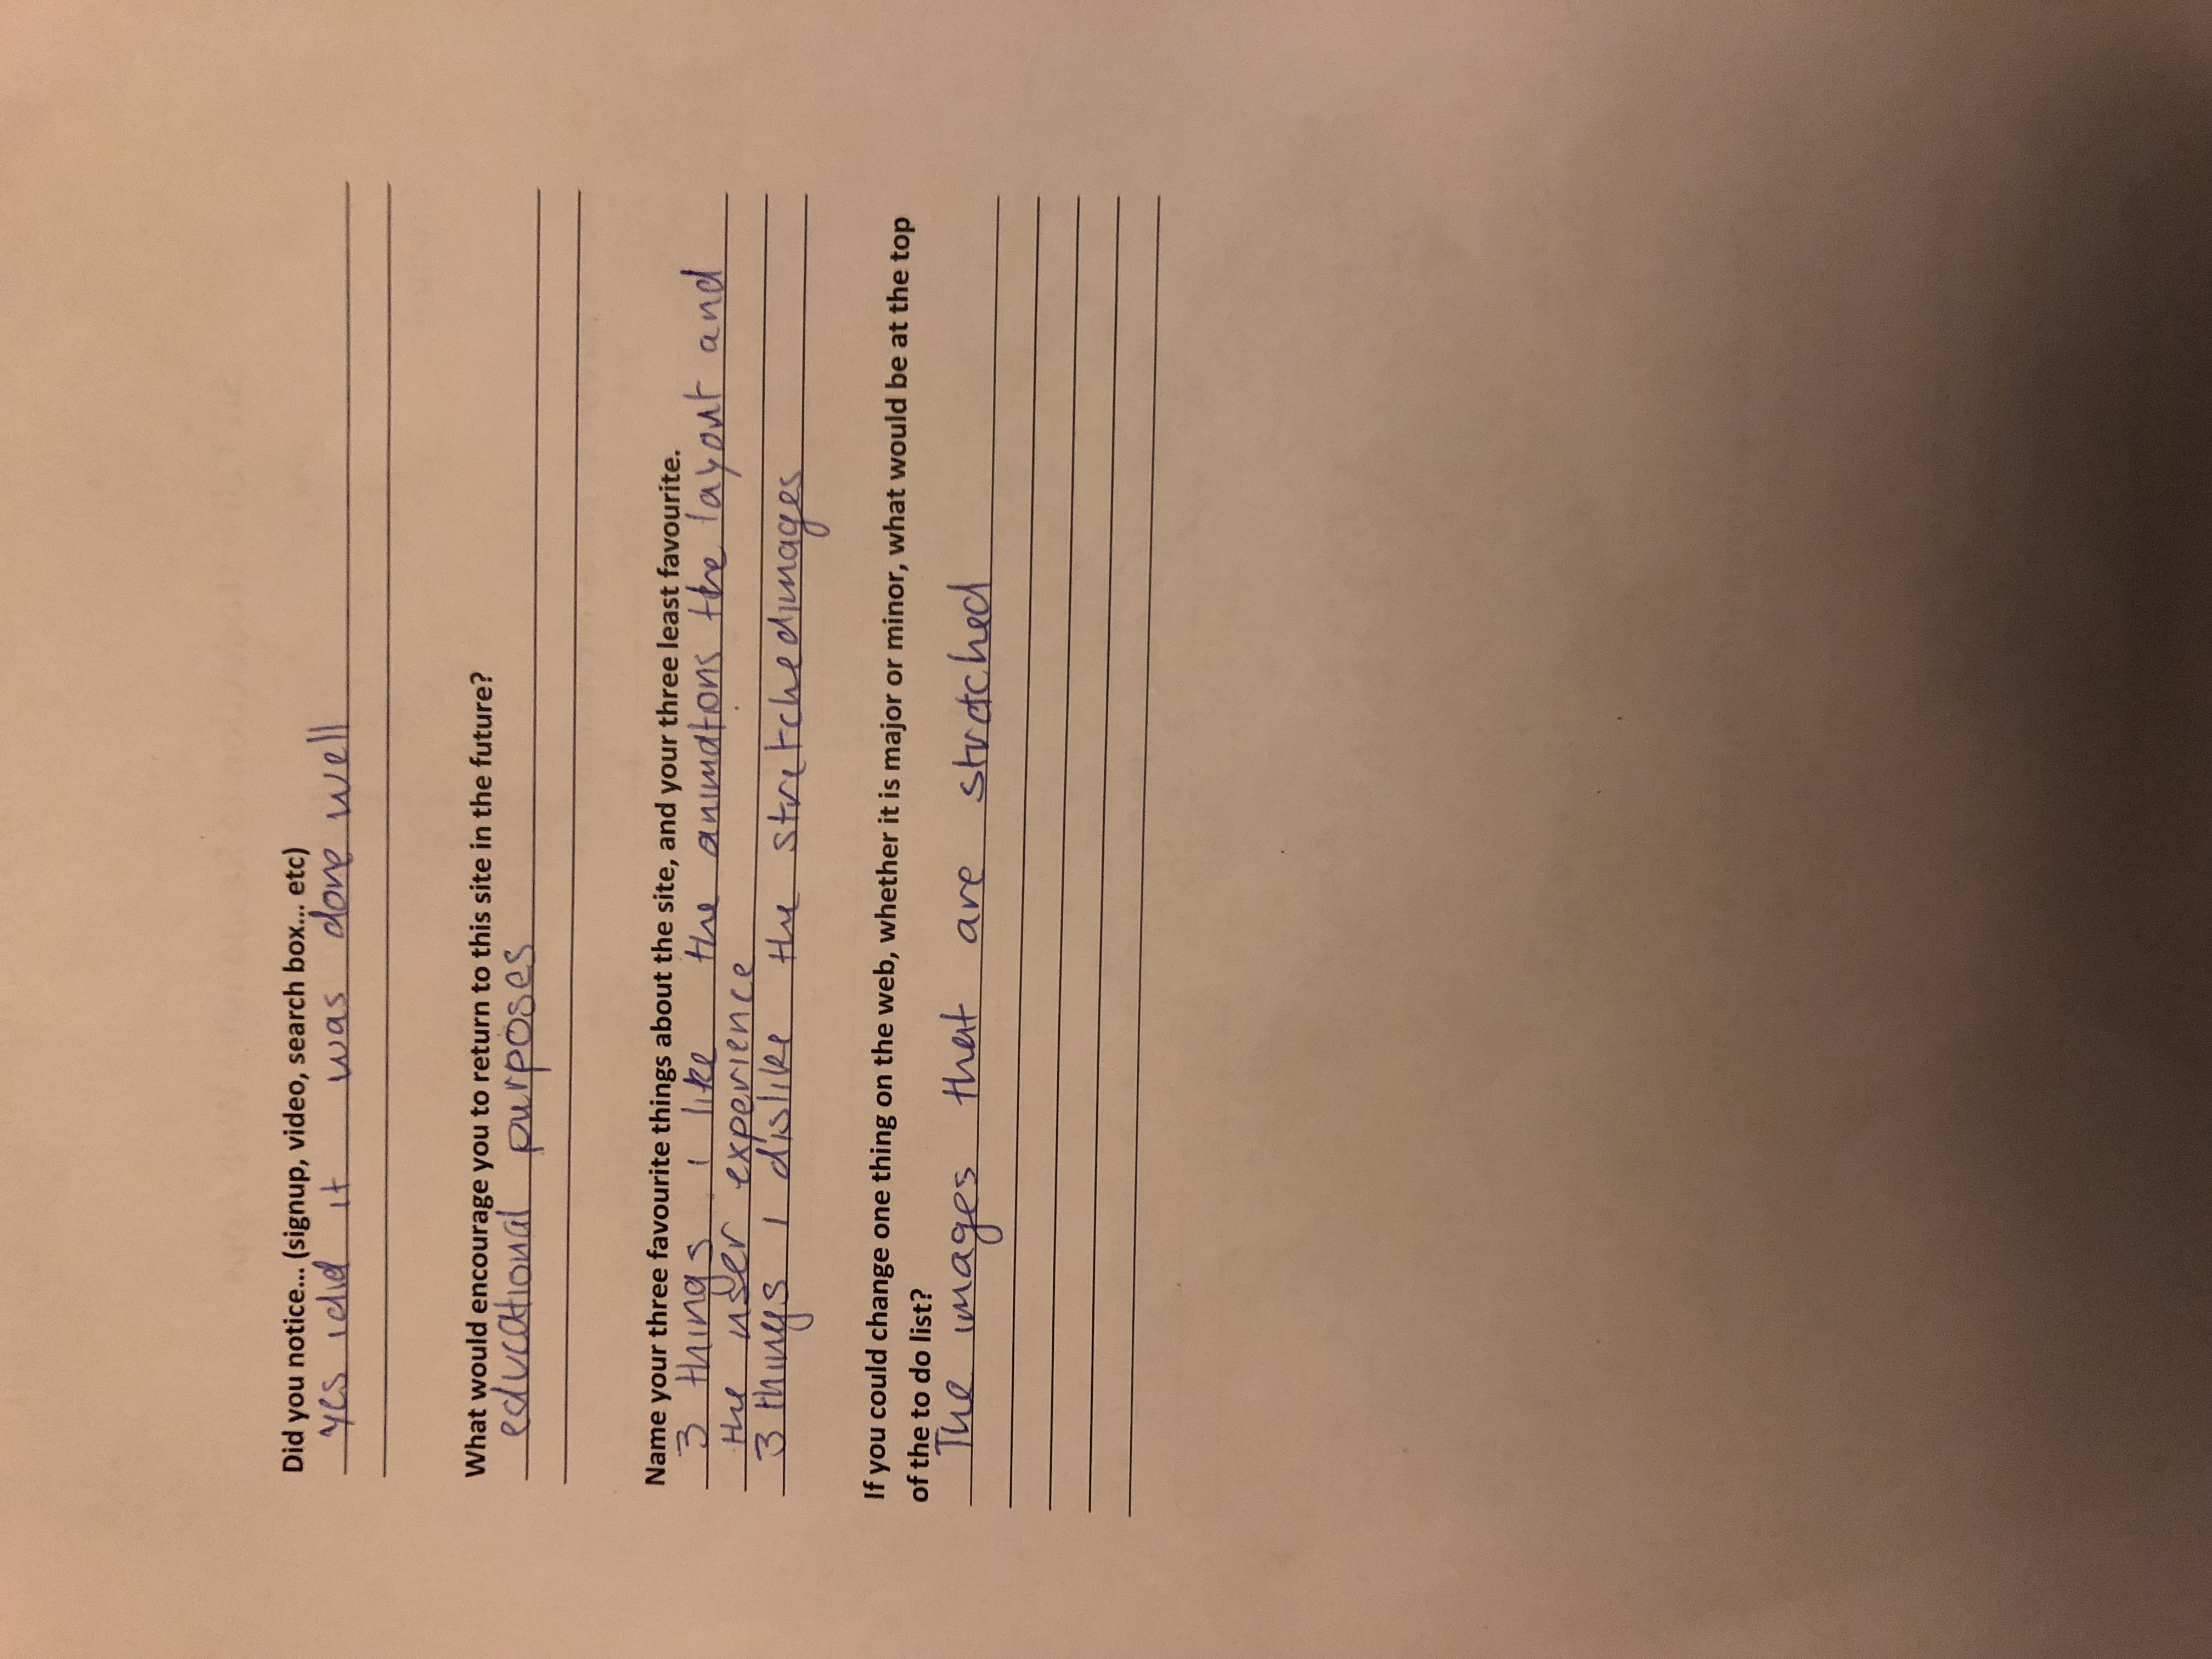 Did you notice... (signup, video, search box... etc)
yes i did it was done well
What would encourage you to return to this site in the future?
educational purposes
Name your three favourite things about the site, and your three least favourite.
3 things i like the animations the layout and
the user experience
3 things I dislike the stretched images
If you could change one thing on the web, whether it is major or minor, what would be at the top
of the to do list?
The images that are stretched